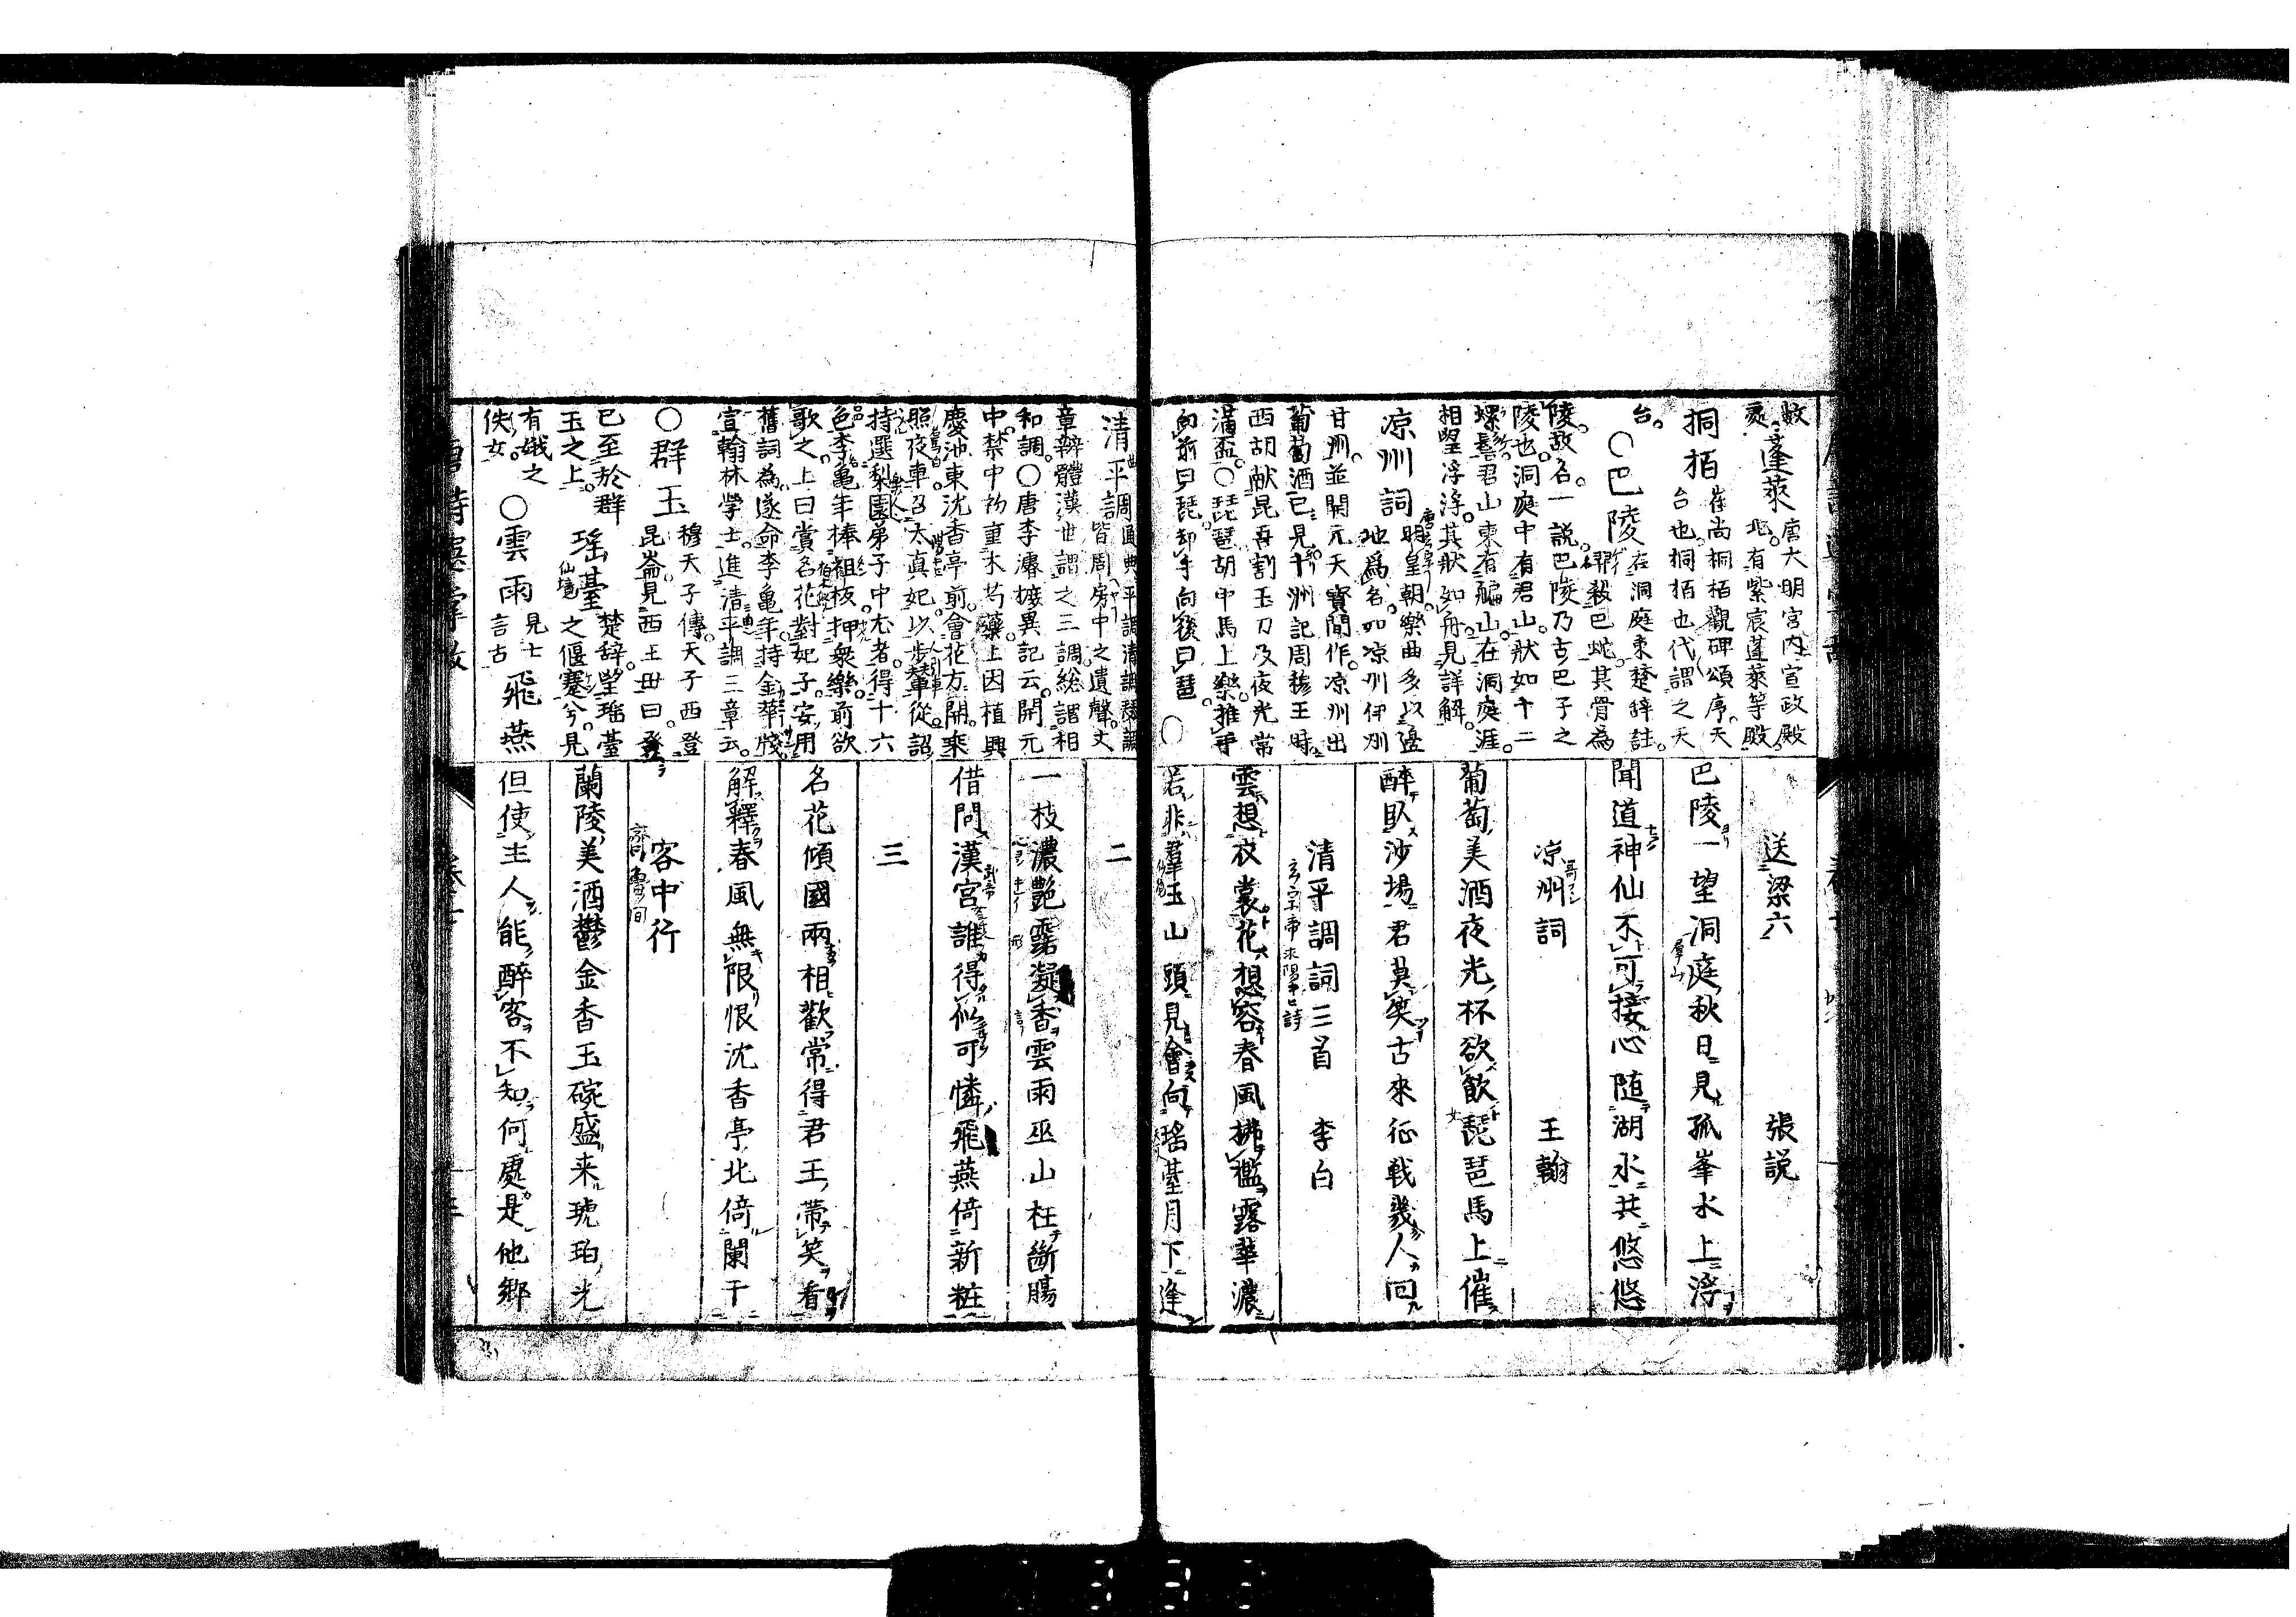 故
處
蓬萊
唐大明宮内宣政殿
北有紫宸蓬萊等殿
桐栢
崔尚桐栢觀碑頌序天
台也桐栢也代謂之天
台
○巴陵
在洞庭東楚辞註
羿殺巴蛇其骨為
陵故名一説巴陵乃古巴子之
陵也洞庭中有君山狀如十二
螺髻君山東有艑山在洞庭涯
相望浮浮其狀如舟見詳解
凉州詞
明皇朝樂曲多以邊
地爲名如凉州伊州
甘州並開元天寶間作凉州出
葡萄酒已見十洲記周穆王時
西胡献昆吾割玉刀及夜光常
滿盃○琵琶胡中馬上樂推手
向前曰琵却手向後曰琶
○
送梁六 張説
巴陵一望洞庭秋日見孤峯水上浮
聞道神仙不可接心随湖水共悠悠
凉州詞 王翰
葡萄美酒夜光杯欲飲琵琶馬上催
醉臥沙場君莫笑古來征戦幾人回
清平調詞三首 李白
雲想衣裳花想容春風拂檻露華濃
若非羣玉山頭見會向瑤臺月下逢
清平調
皆周房中之遺聲文
章辨體漢世謂之三調総謂相
和調○唐李濬摭異記云開元
中禁中初重木芍藥上因植興
慶池東沈香亭前會花方開乘
照夜車召太真妃以步輦從詔
持選梨園弟子中尤者得十六
色李亀年棒檀板押衆樂前欲
歌之上曰賞名花對妃子安用
舊詞為遂命李亀年持金華牋
宣翰林學士進清平調三章云
○群玉
穆天子傳天子西登
昆崙見西王母曰登
已至於群
玉之上
瑶臺
楚辞望瑶臺
之偃蹇兮見
有娥之
佚女
○雲雨
見士
言古
飛燕
二
一枝濃艶露凝香雲雨巫山枉断腸
借問漢宮誰得似可憐飛燕倚新粧
三
名花傾國兩相歡常得君王帶笑看
解釋春風無限恨沈香亭北倚闌干
客中行
蘭陵美酒鬱金香玉碗盛来琥珀光
但使主人能醉客不知何處是他郷